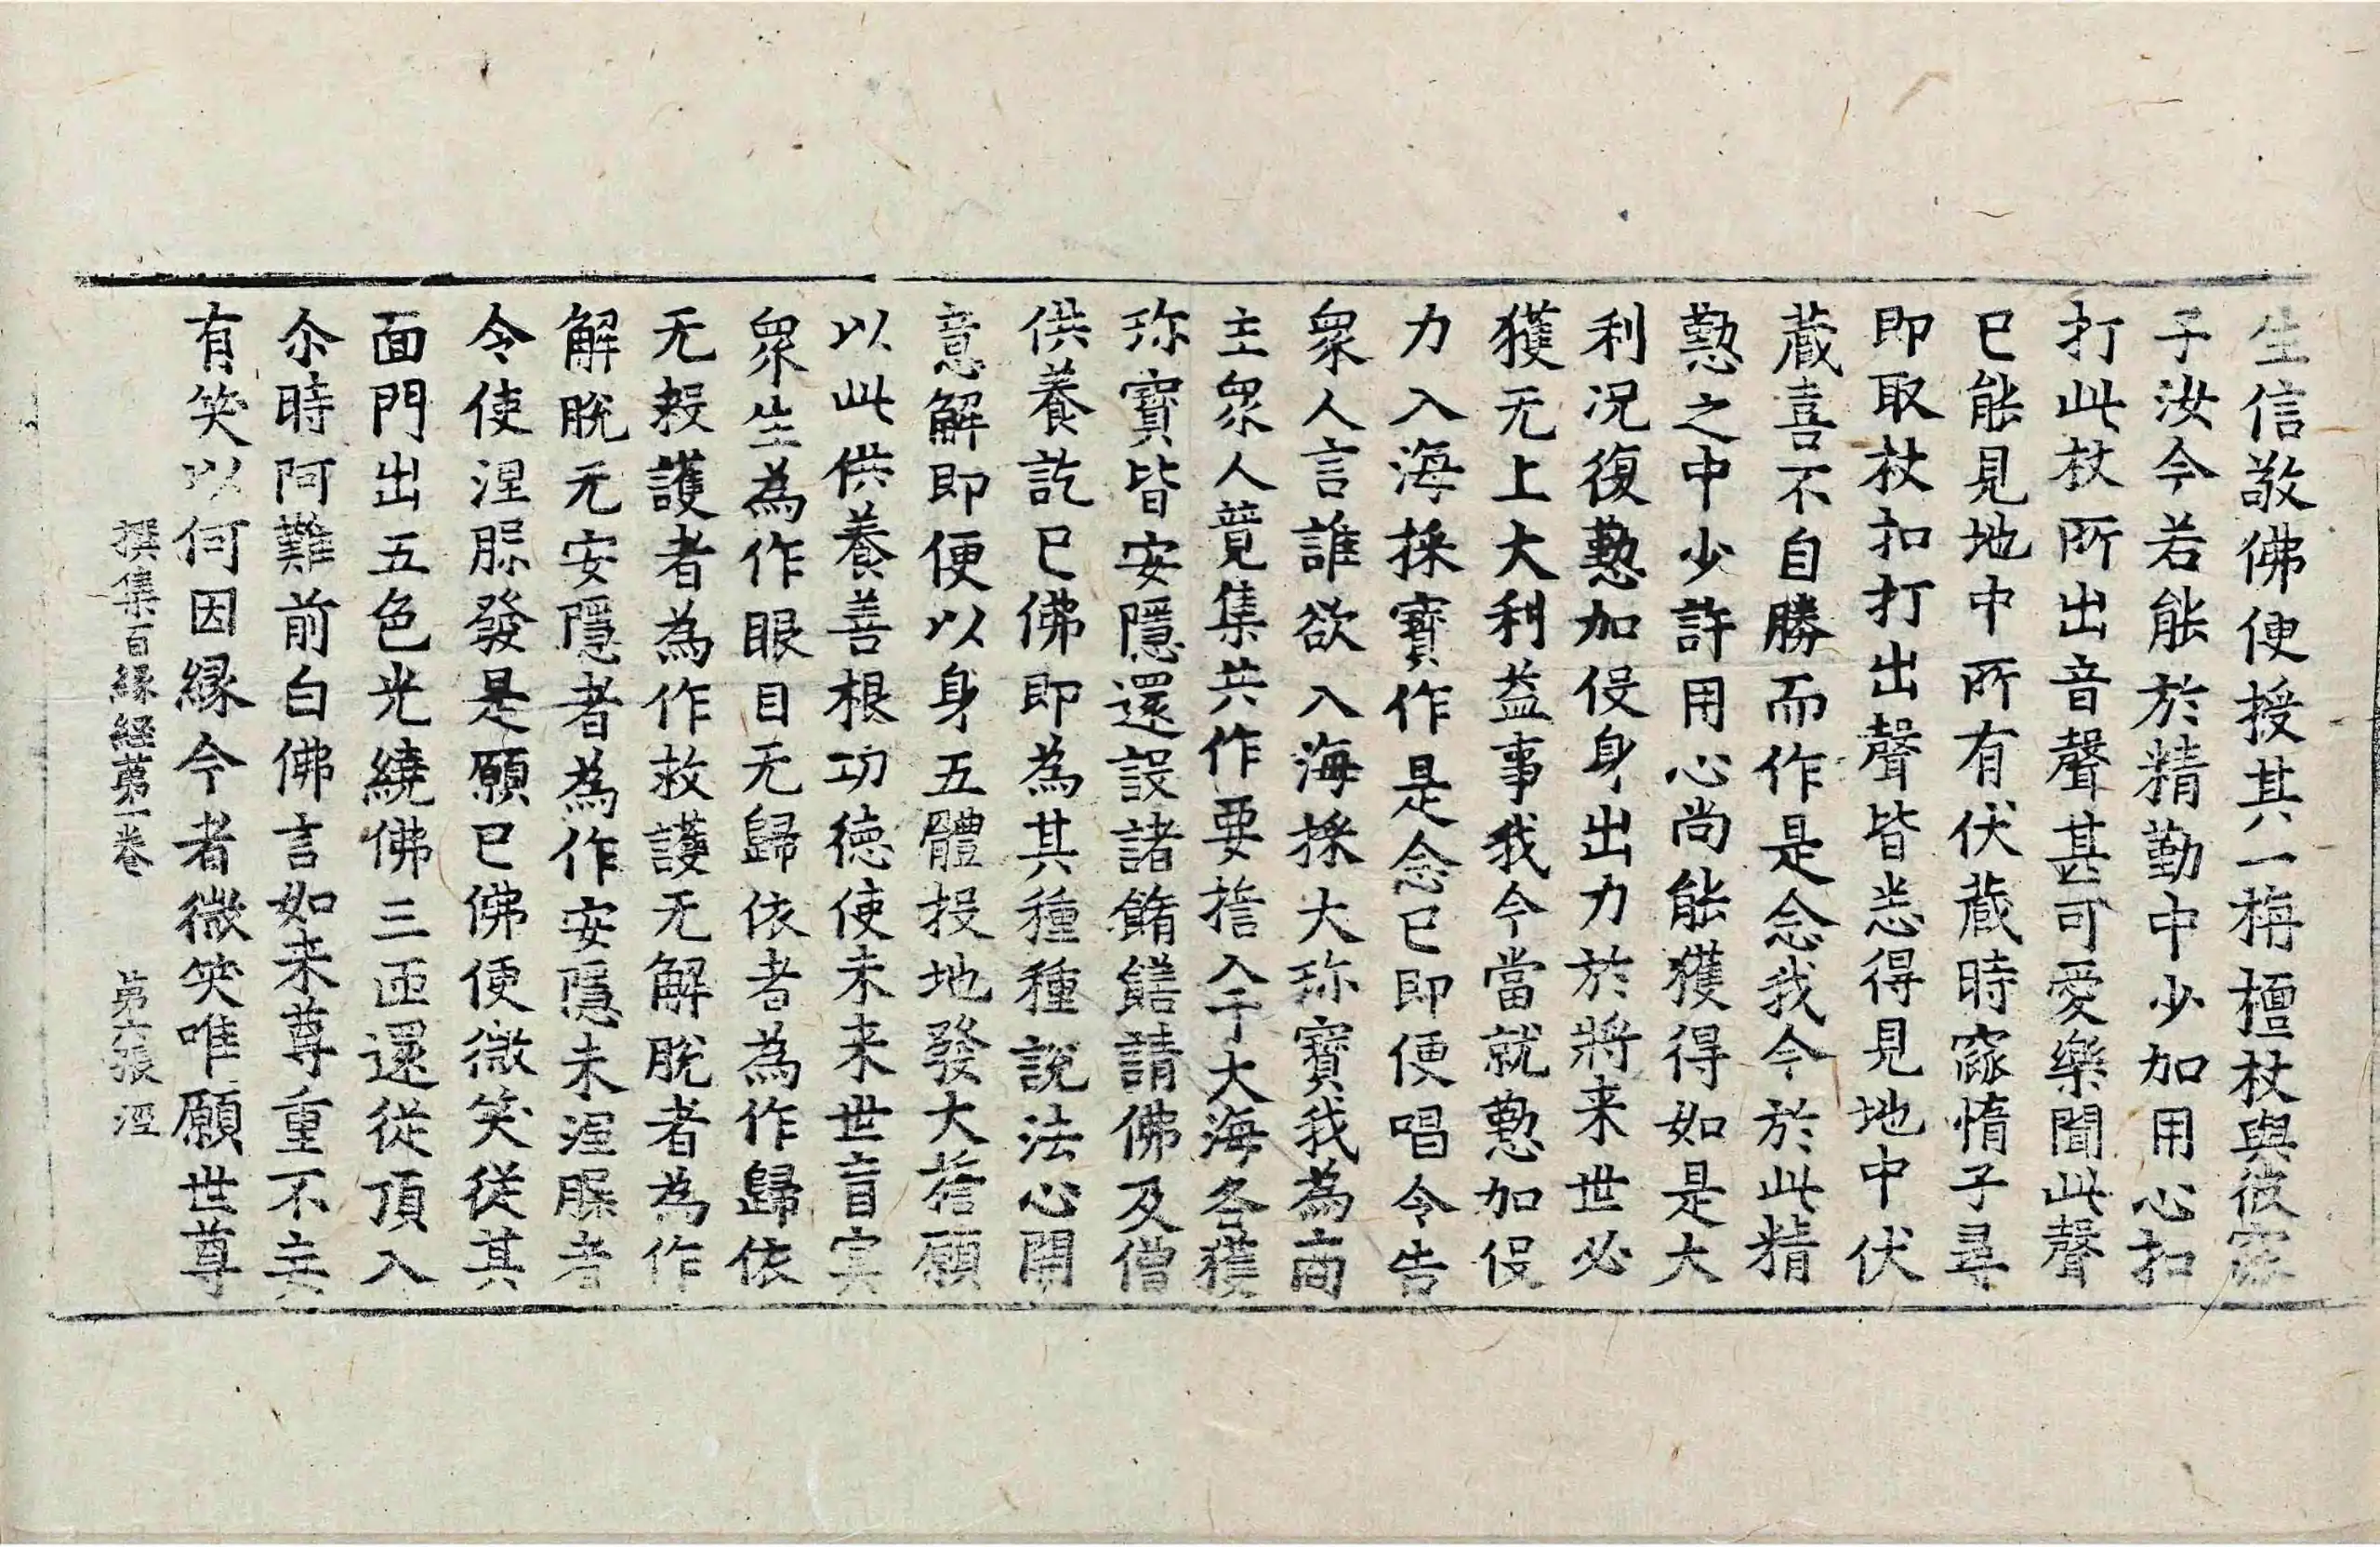 生信敬佛便授其一栴檀杖與彼窳
子汝今若能於精勤中少加用心扣
打此杖所出音聲甚可愛樂聞此聲
已能見地中所有伏藏時窳惰子尋
即取杖扣打出聲皆悉得見地中伏
藏喜不自勝而作是念我今於此精
懃之中少許用心尚能獲得如是大
利況復懃加役身出力於將来世必
獲无上大利益事我今當就懃加役
力入海採寶作是念已即便唱令告
衆人言誰欲入海採大珎寶我為商
主衆人競集共作要擔入于大海各獲
珎寶皆安隱還設諸餚饍請佛及僧
供養訖已佛即為其種種說法心開
意解即便以身五體投地發大擔願
以此供養善根功德使未来世盲冥
衆生為作眼目无歸依者為作歸依
无救護者為作救護无解脫者為作
解脫无安隱者為作安隱未涅槃者
令使涅槃發是願已佛便微笑從其
面門出五色光繞佛三匝還從頂入
尒時阿難前白佛言如来尊重不妄
有笑以何因緣今者微笑唯願世尊
撰集百緣經第一卷 第六張 涇